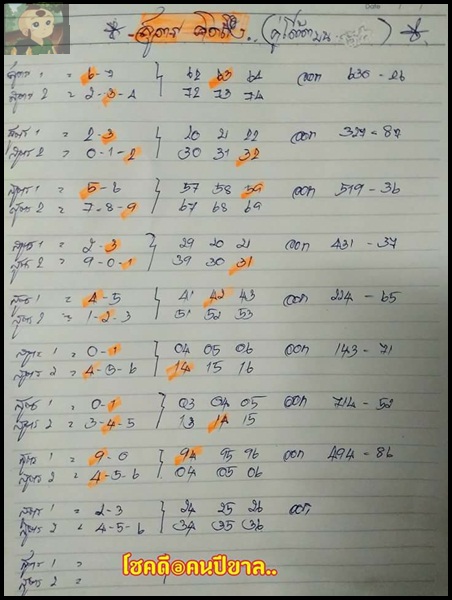 สูตร 1 = 6-7 62 63 64 ออก 630 - 26
สูตร 2 = 2-3-4 72 73 74
สูตร 1 = 2-3 20 21 22 ออก 327 - 87
สูตร 2 = 0-1-2 30 31 32
สูตร 1 = 5-6 57 58 59 ออก 519 - 36
สูตร 2 = 7-8-9 67 68 69
สูตร 1 = 2-3 29 20 21 ออก 431 - 37
สูตร 2 = 9-0-1 39 30 31
สูตร 1 = 4-5 41 42 43 ออก 224 - 65
สูตร 2 = 1-2-3 51 52 53
สูตร 1 = 0-1 04 05 06 ออก 143 - 71
สูตร 2 = 4-5-6 14 15 16
สูตร 1 = 0-1 03 04 05 ออก 714 - 52
สูตร 2 = 3-4-5 13 14 15
สูตร 1 = 9-0 94 95 96 ออก 494 - 86
สูตร 2 = 4-5-6 04 05 06
สูตร 1 = 2-3 24 25 26 ออก
สูตร 2 = 4-5-6 34 35 36
สูตร 1 =
สูตร 2 =
โชคดี@คนปีขาล..